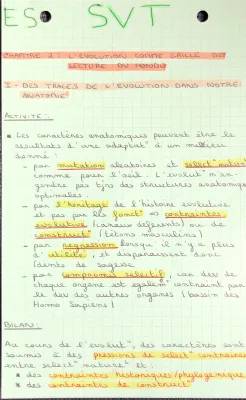 ES SVT
CHAPITRE 2 : L'EVOLUTION COMME GRILLE DE
LECTURE DU MONDE
I - DES TRACES DE L'EVOLUTION DANS NOTRE
ANATOMIE
ACTIVITE :
• Les caractères anatomiques peuvent être le
résultats d'une adaptat° d'un milieu
donné :
- par mutation aléatoires et select° naturelle
comme pour l'oeil. L'evolut° n'en-
gendre pas tjrs des structures anatomiques
optimales
- par l'heritage de l'histoire evolutive
et pas par les fonct° => contraintes
evolutive (canaux déférents) ou de
construct° (tétons masculins)
- par regression lorsque il n'y a plus
d'utilité, et disparaissent donc
(dents de sagesse
- par compromis selectif, car der de
chaque organe est egalem° contraint par
le der des autres organes (bassin des
Homo Sapiens)
BILAN :
Au cours de l'evolut°, des caractères sont
soumis à des pressions de select° contraires
entre select° naturelle et :
• des contraintes historiques/phylogeniques
• des contraintes de construct°